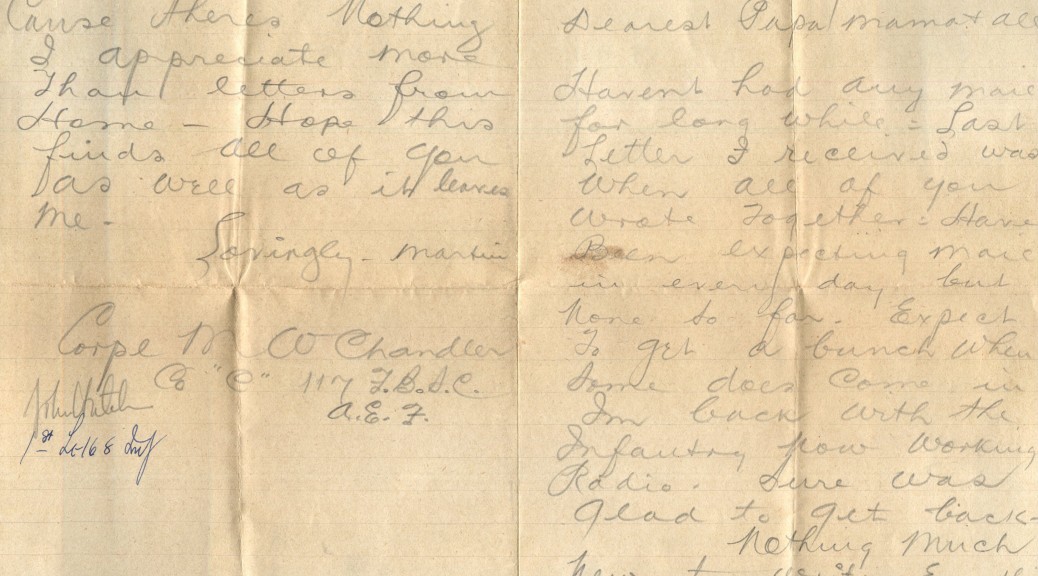 Cause theres Nothing
I appreciate more
Than letters from
Home - Hope this
finds all of you
as well as it leaves
me -
Lovingly - Martin
Corpl M W Chandler
Co "C" 117 F.B.S.C.
A.E.F.
1st Lt 168 Inf
Dearest Papa Mama & all
Havent had any mail
for long while = Last
Letter I received was
When all of you
wrote Together = Have
Been expecting mail
in every day but
None so far. Expect
To get a bunch when
Some does Come in
Im back with the
Infantry now working
Radio. Sure was
Glad to get back -
Nothing Much